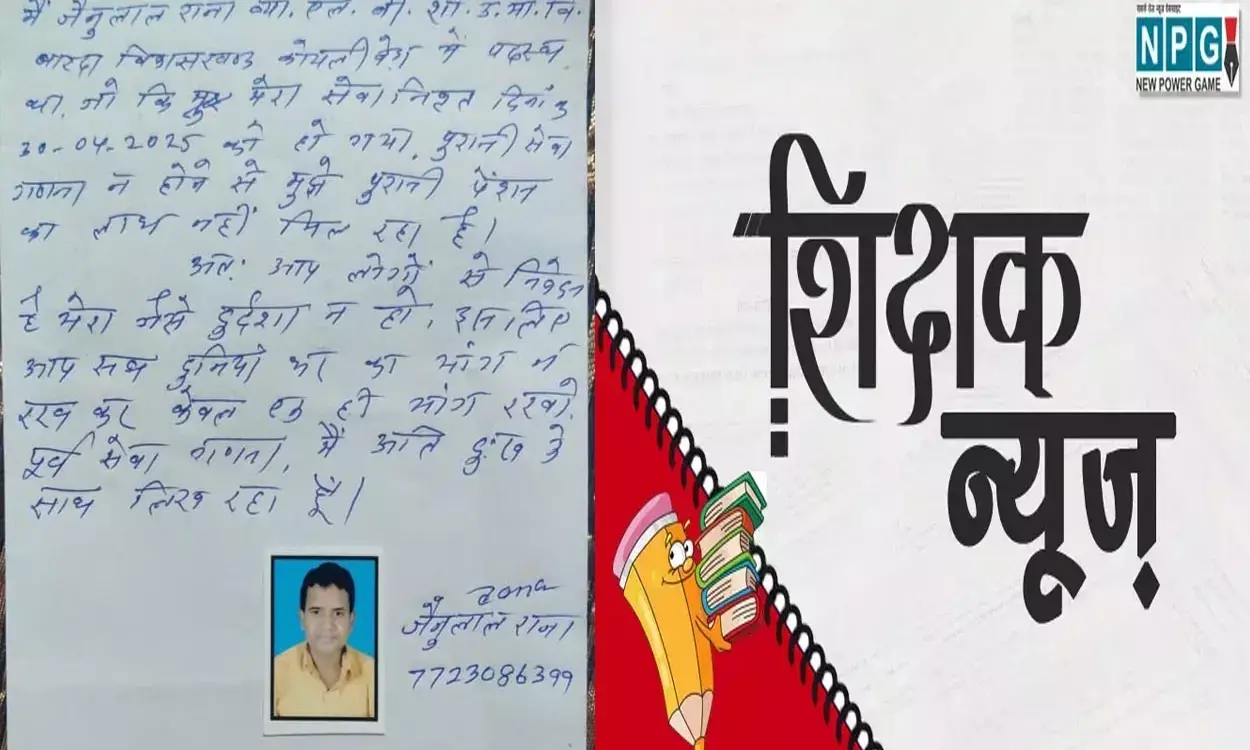 मैं जैनुलाल राना व्या. एल. बी. शा. उ. मा. वि.
बारदा विकासखण्ड कोयलीबेड़ा में पदस्थ
था. जो कि मेरा सेवा निवृत दिनांक
30-04-2025 को हो गया. पुरानी सेवा
गणना न होने से मुझे पुरानी पेंशन
का लाभ नहीं मिल रहा है।
अतः आप लोगों से निवेदन
है मेरा जैसे दुर्दशा न हो, इसलिए
आप सब दुनिया भर का मांग न
रख कर केवल एक ही मांग रखो.
पूर्व सेवा गणना, मैं अति दुःख के
साथ लिख रहा हूँ।
जैनुलाल राना
7723086399
NPG
NEW POWER GAME
शिक्षक
न्यूज़